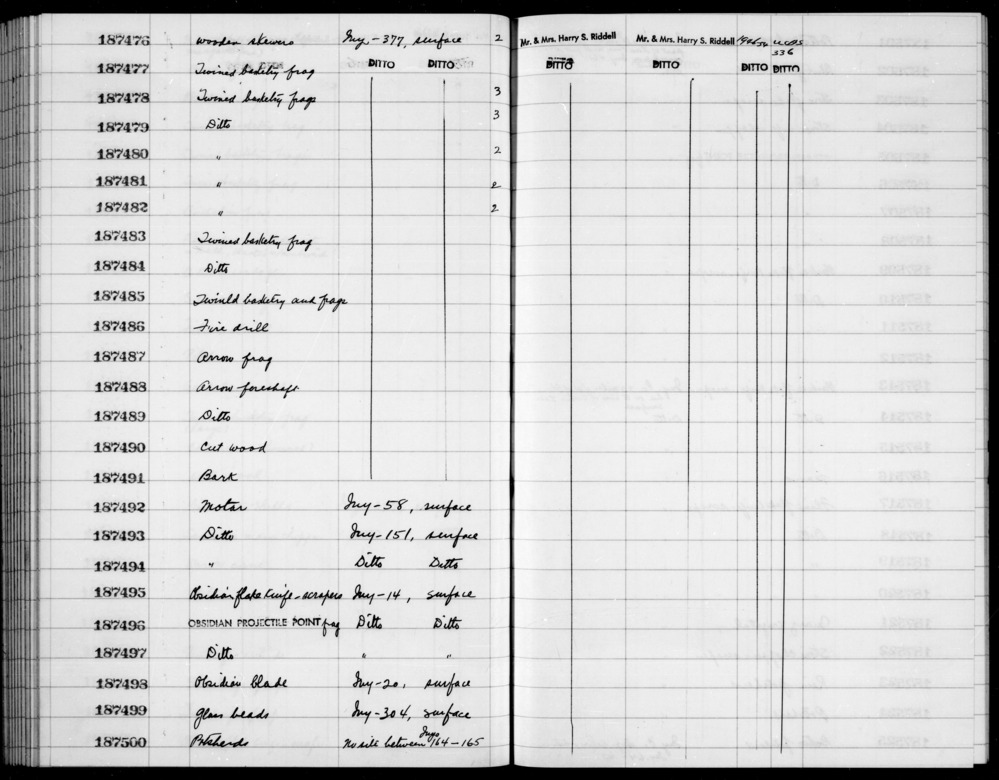 187476 wooden skewers Iny-377, surface 2 Mr. & Mrs. Harry S. Riddell Mr. & Mrs. Harry S. Riddell UCAS
336
187477 Twined basketry frag DITTO DITTO DITTO DITTO DITTO DITTO
187478 Twined basketry frags 3
187479 Ditto 3
187480 " 2
187481 " 2
187482 " 2
187483 Twined basketry frag
187484 Ditto
187485 Twined basketry and frags
187486 Fire drill
187487 Arrow frag
187488 Arrow foreshaft
187489 Ditto
187490 Cut wood
187491 Bark
187492 Motar Iny-58, surface
187493 Ditto Iny-151, surface
187494 " Ditto Ditto
187495 Obsidian flake knife-scrapers Iny-14, surface
187496 OBSIDIAN PROJECTILE POINT frag Ditto Ditto
187497 Ditto " "
187498 Obsidian blade Iny-20, surface
187499 Glass beads Iny-304, surface
187500 Potsherds between Inyo 164-165